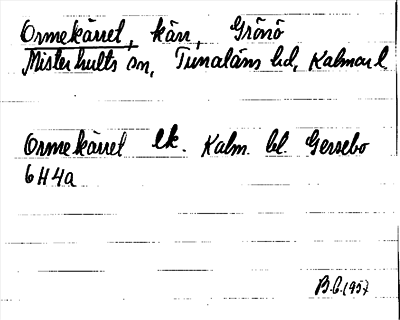 Ormekärret, kärr, Grönö
Misterhults sn, Tunaläns hd, Kalmar l.
Ormekärret lk. Kalm. bl. Gersebo
6H4a
B.C. 1957